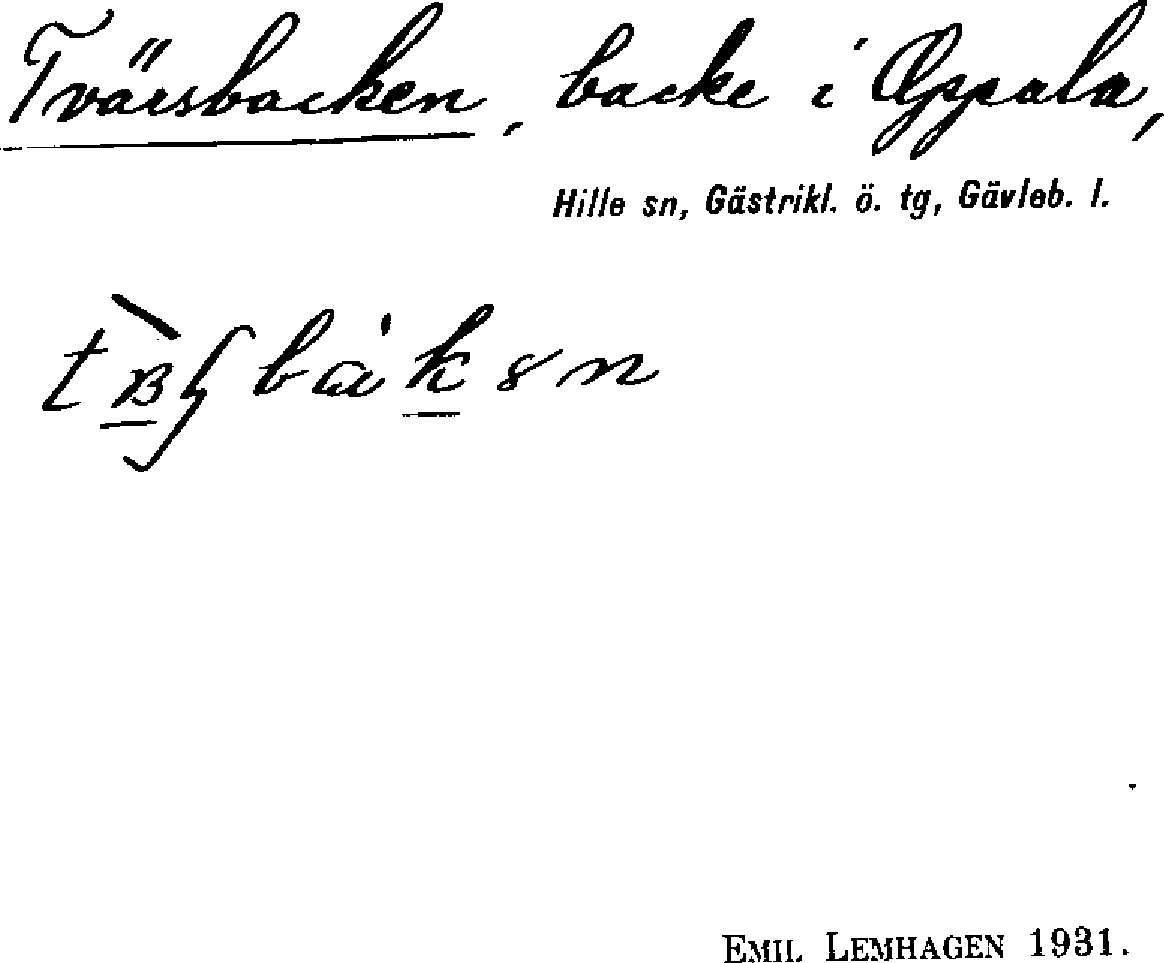 Tvärsbacken, backe i Oppala,
Hille sn, Gästrikl. ö. tg, Gävleb. l.
EMIL LEMHAGEN 1931.